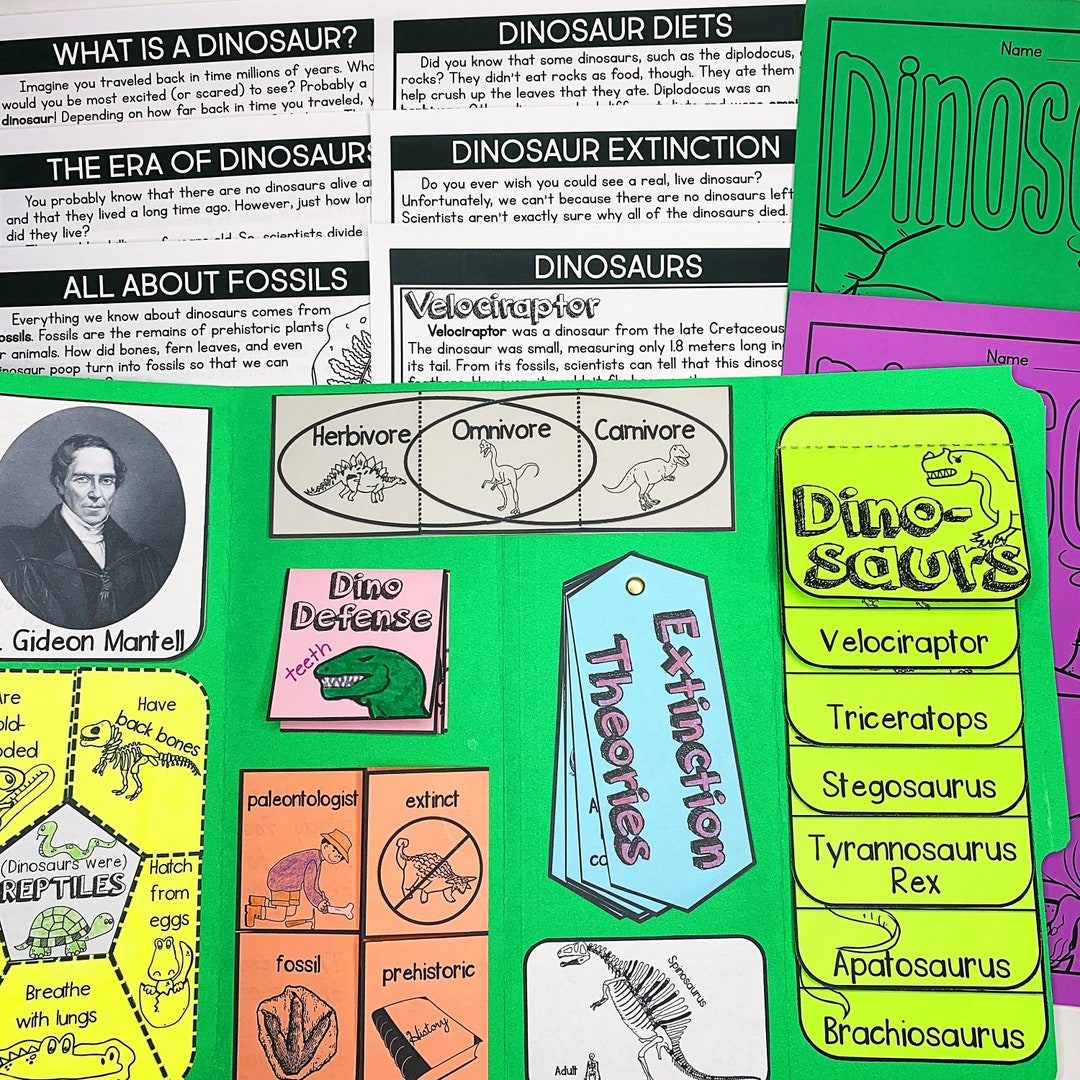 WHAT IS A DINOSAUR?
Imagine you traveled back in time millions of years.
would you be most excited (or scared) to see? Probably a
dinosaur! Depending on how far back in time you traveled,
THE ERA OF DINOSAURS
You probably know that there are no dinosaurs alive
and that they lived a long time ago. However, just how
did they live?
So, scientists divide
ALL ABOUT FOSSILS
Everything we know about dinosaurs comes from
Fossils are the remains of prehistoric plants
animals. How did bones, fern leaves, and even
poop turn into fossils so that we can
DINOSAUR DIETS
Did you know that some dinosaurs, such as the diplodocus,
rocks? They didn't eat rocks as food, though. They ate them
help crush up the leaves that they ate. Diplodocus was an
DINOSAUR EXTINCTION
Do you ever wish you could see a real, live dinosaur?
Unfortunately, we can't because there are no dinosaurs left
Scientists aren't exactly sure why all of the dinosaurs died.
DINOSAURS
Velociraptor
Velociraptor was a dinosaur from the late Cretaceous
The dinosaur was small, measuring only 1.8 meters long
its tail. From its fossils, scientists can tell that this
Name
Dinos
Name
Gideon Mantell
Herbivore
Omnivore
Carnivore
Dino-
saurs
Velociraptor
Triceratops
Stegosaurus
Tyrannosaurus
Rex
Apatosaurus
Brachiosaurus
Dino
Defense
teeth
Extinction
Theories
Have
back bones
(Dinosaurs were)
REPTILES
Hatch
from
eggs
Breathe
with lungs
paleontologist
extinct
fossil
prehistoric
History
Spinosaurus
Adult